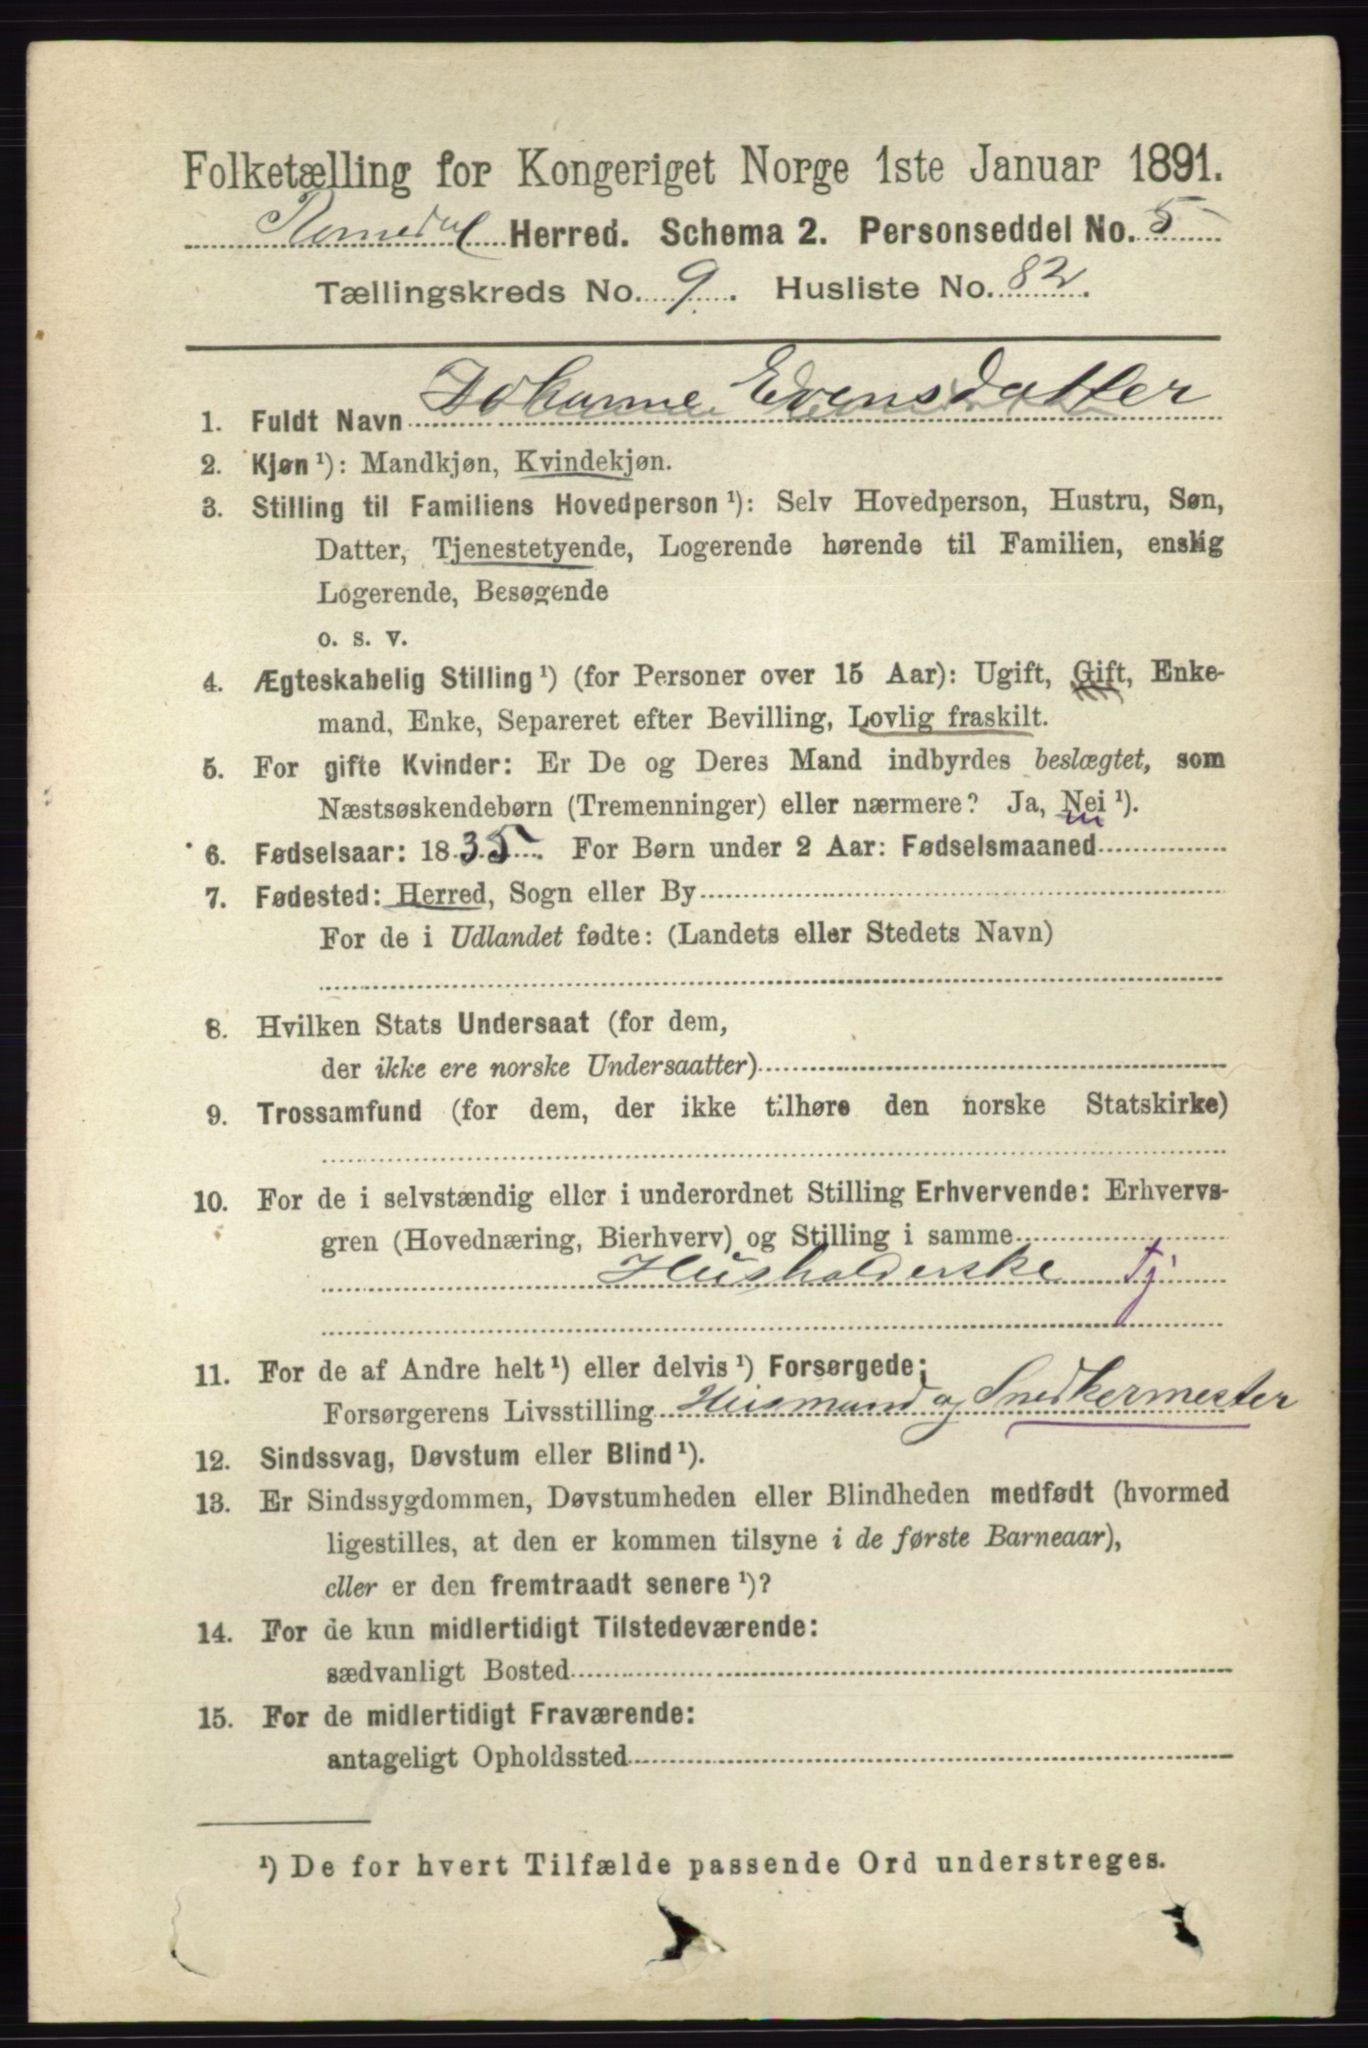 Folketælling for Kongeriget Norge 1ste Januar 1891.
Romedal Herred. Schema 2. Personseddel No. 5
Tællingskreds No. 9. Husliste No. 82.
1. Fuldt Navn Johanne Evensdatter
2. Kjøn ¹): Mandkjøn, Kvindekjøn.
3. Stilling til Familiens Hovedperson ¹): Selv Hovedperson, Hustru, Søn,
Datter, Tjenestetyende, Logerende hørende til Familien, enslig
Logerende, Besøgende
o. s. v.
4. Ægteskabelig Stilling ¹) (for Personer over 15 Aar): Ugift, Gift, Enke-
mand, Enke, Separeret efter Bevilling, Lovlig fraskilt.
5. For gifte Kvinder: Er De og Deres Mand indbyrdes beslægtet, som
Næstsøskendebørn (Tremenninger) eller nærmere? Ja, Nei ¹).
6. Fødselsaar: 1835. For Børn under 2 Aar: Fødselsmaaned
7. Fødested: Herred, Sogn eller By
For de i Udlandet fødte: (Landets eller Stedets Navn)
8. Hvilken Stats Undersaat (for dem,
der ikke ere norske Undersaatter)
9. Trossamfund (for dem, der ikke tilhøre den norske Statskirke)
10. For de i selvstændig eller i underordnet Stilling Erhvervende: Erhvervs-
gren (Hovednæring, Bierhverv) og Stilling i samme
Husholderske tj
11. For de af Andre helt ¹) eller delvis ¹) Forsørgede:
Forsørgerens Livsstilling Husmand og Snedkermester
12. Sindssvag, Døvstum eller Blind ¹).
13. Er Sindssygdommen, Døvstumheden eller Blindheden medfødt (hvormed
ligestilles, at den er kommen tilsyne i de første Barneaar),
eller er den fremtraadt senere ¹)?
14. For de kun midlertidigt Tilstedeværende:
sædvanligt Bosted
15. For de midlertidigt Fraværende:
antageligt Opholdssted
¹) De for hvert Tilfælde passende Ord understreges.